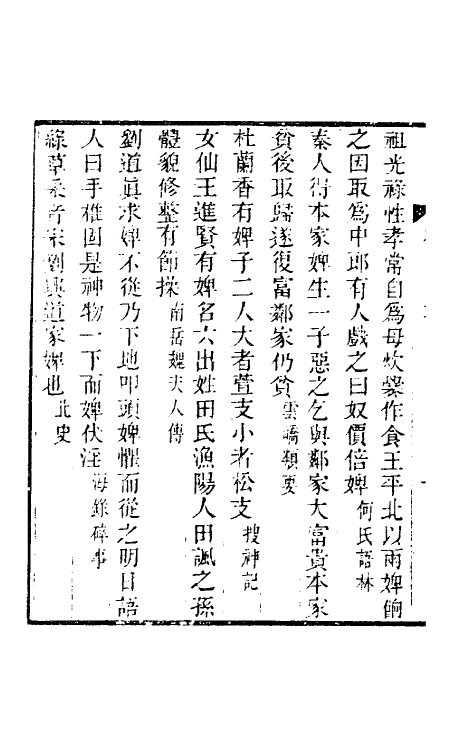 祖光祿性孝常自爲母炊爨作食王平北以兩婢餉
之因取爲中郎有人戲之曰奴價倍婢 何氏語林
秦人得本家婢生一子惡之乞與鄰家大富貴本家
貧後取歸遂復富鄰家仍貧 雲嶠類要
杜蘭香有婢子二人大者萱支小者松支 搜神記
女仙王進賢有婢名六出姓田氏漁陽人田諷之孫
體貌修整有節操 南岳魏夫人傳
劉道眞求婢不從乃下地叩頭婢懼而從之明日語
人曰手推固是神物一下而婢伏淫 海錄碎事
綠草柔音宋劉興道家婢也 北史